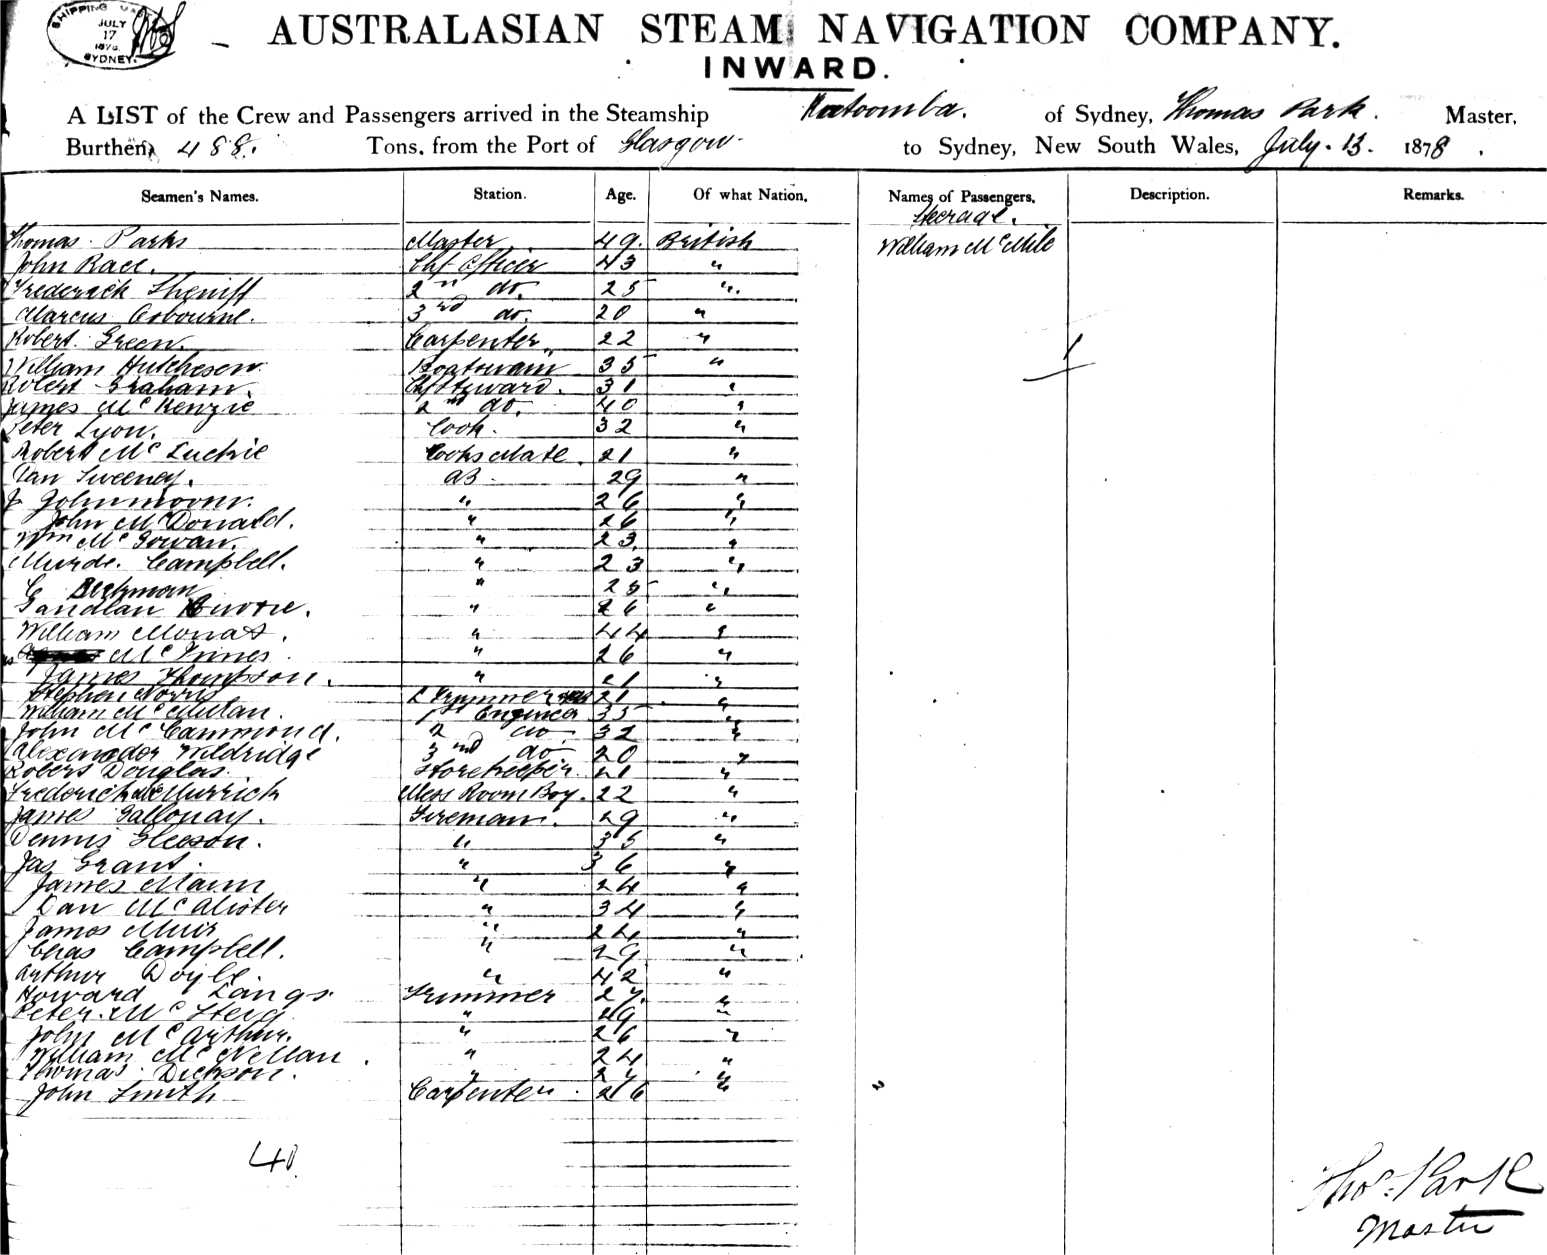 SHIPPING MAST
JULY
17
1878
SYDNEY.
AUSTRALASIAN STEAM NAVIGATION COMPANY.
INWARD.
A LIST of the Crew and Passengers arrived in the Steamship Katoomba. of Sydney, Thomas Park. Master,
Burthen 488. Tons, from the Port of Glasgow. to Sydney, New South Wales, July. 13. 1878.
Seamen's Names. Station. Age. Of what Nation. Names of Passengers. Description. Remarks.
Steerage.
Thomas Parks Master 49. British William McMile
John Race. Chf Officer 43 "
Frederick Sheriff 2nd do. 25 "
Marcus Osbourne. 3rd do. 20 "
Robert Green. Carpenter 22 "
William Hutcheson Boatswain 35 "
Robert Graham. Chf Steward. 31 "
James McKenzie 2nd do. 40 "
Peter Lyon. Cook. 32 "
Robert McLuckie Cooks Mate. 21 "
Dan Sweeney. AB. 29 "
J " 26 "
John McDonald. " 26 "
Wm McGowan. " 23. "
Murdo. Campbell. " 23 "
C Beckman " 25 "
" 26 "
William Monat. " 44 "
McInnes " 26 "
James Thompson. " 21 "
Stephen Norris Trimmer 21 "
William McMillan. 1st Engineer 35 "
John McCammond. 2 do 32 "
Alexander Weldridge 3nd do 20 "
Robert Douglas. Storekeeper. 21 "
Frederick Mess Room Boy. 22 "
James Galloway. Fireman. 29 "
Dennis Gleeson. " 35 "
Jas Grant. " 36 "
James Mann " 24 "
Dan McAlister " 34 "
James Muir " 24 "
Chas Campbell. " 29 "
Arthur Doyle. " 42 "
Howard Langs. Trimmer 27. "
Peter. McSteig " 29 "
John McArthur. " 26 "
William McNellan. " 24 "
Thomas Dickson. " 27 "
John Smith Carpenter. 26 "
40.
1
Thos. Park
Master